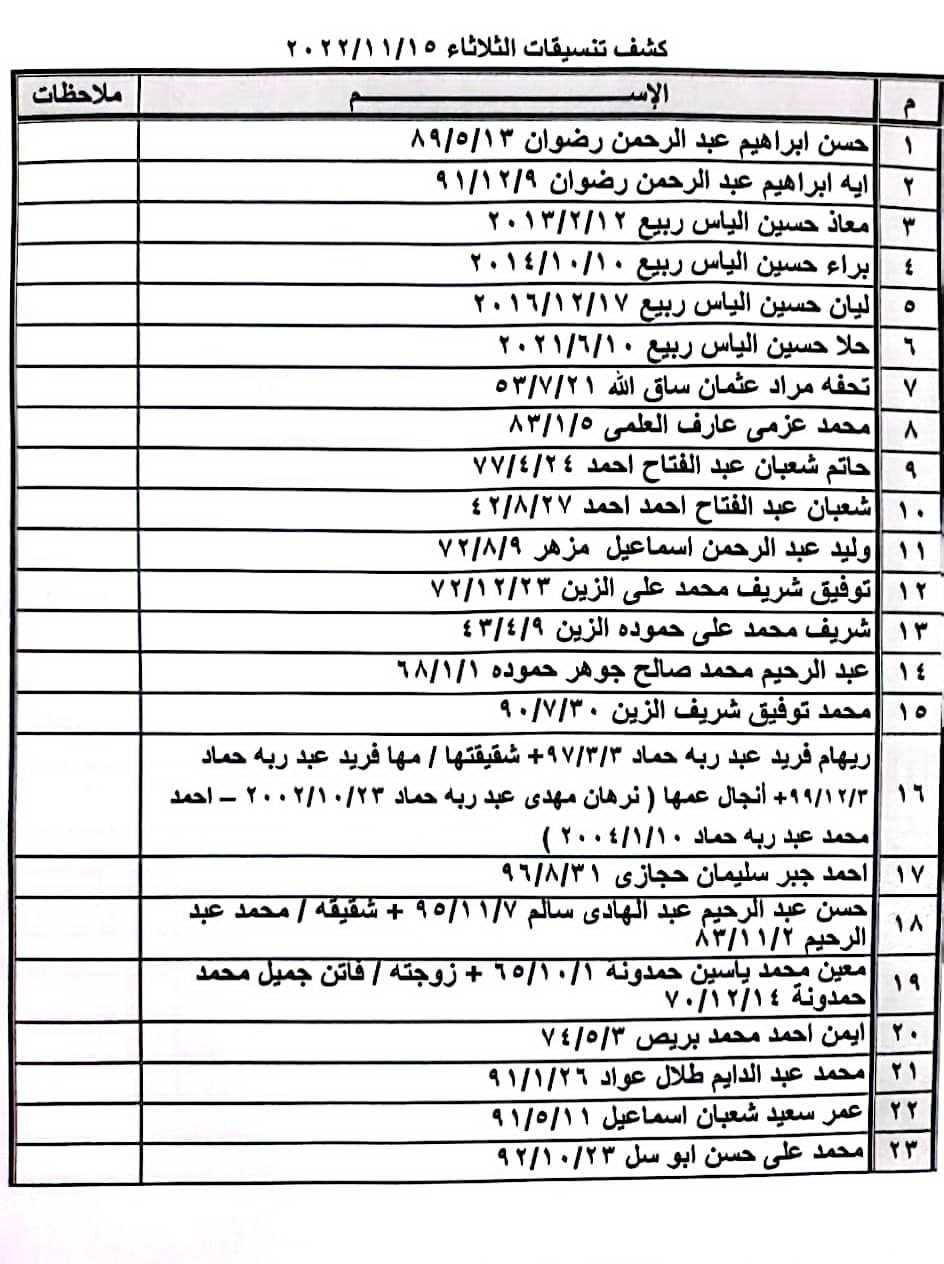 كشف تنسيقات الثلاثاء ٢٠٢٢/١١/١٥
م الإســـــــــــــــــــم ملاحظات
١ حسن ابراهيم عبد الرحمن رضوان ٨٩/٥/١٣
٢ ايه ابراهيم عبد الرحمن رضوان ٩١/١٢/٩
٣ معاذ حسين الياس ربيع ٢٠١٣/٢/١٢
٤ براء حسين الياس ربيع ٢٠١٤/١٠/١٠
٥ ليان حسين الياس ربيع ٢٠١٦/١٢/١٧
٦ حلا حسين الياس ربيع ٢٠٢١/٦/١٠
٧ تحفه مراد عثمان ساق الله ٥٣/٧/٢١
٨ محمد عزمى عارف العلمى ٨٣/١/٥
٩ حاتم شعبان عبد الفتاح احمد ٧٧/٤/٢٤
١٠ شعبان عبد الفتاح احمد احمد ٤٢/٨/٢٧
١١ وليد عبد الرحمن اسماعيل مزهر ٧٢/٨/٩
١٢ توفيق شريف محمد على الزين ٧٢/١٢/٢٣
١٣ شريف محمد على حموده الزين ٤٣/٤/٩
١٤ عبد الرحيم محمد صالح جوهر حموده ٦٨/١/١
١٥ محمد توفيق شريف الزين ٩٠/٧/٣٠
ريهام فريد عبد ربه حماد ٩٧/٣/٣+ شقيقتها / مها فريد عبد ربه حماد
١٦ ٩٩/١٢/٣+ أنجال عمها ( نرهان مهدى عبد ربه حماد ٢٠٠٢/١٠/٢٣ – احمد
محمد عبد ربه حماد ٢٠٠٤/١/١٠ )
١٧ احمد جبر سليمان حجازى ٩٦/٨/٣١
١٨ حسن عبد الرحيم عبد الهادى سالم ٩٥/١١/٧ + شقيقه / محمد عبد
الرحيم ٨٣/١١/٢
١٩ معين محمد ياسين حمدونة ٦٥/١٠/١ + زوجته / فاتن جميل محمد
حمدونة ٧٠/١٢/١٤
٢٠ ايمن احمد محمد بريص ٧٤/٥/٣
٢١ محمد عبد الدايم طلال عواد ٩١/١/٢٦
٢٢ عمر سعيد شعبان اسماعيل ٩١/٥/١١
٢٣ محمد على حسن ابو سل ٩٢/١٠/٢٣